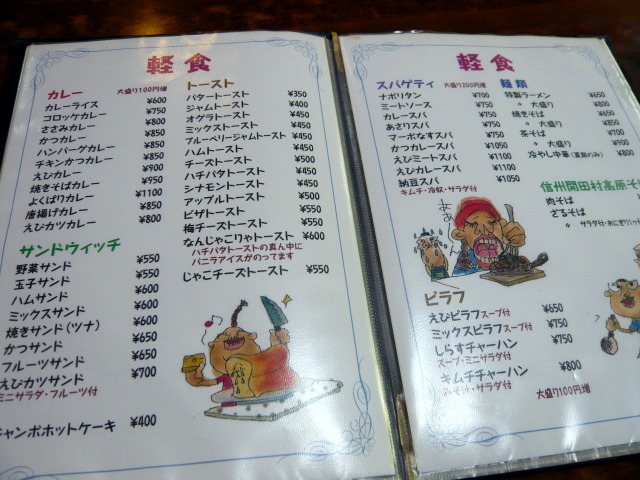 軽食
カレー 大盛り100円増
カレーライス ¥600
コロッケカレー ¥750
ささみカレー ¥800
かつカレー ¥850
ハンバーグカレー ¥850
チキンかつカレー ¥850
えびカレー ¥900
焼きそばカレー ¥950
よくばりカレー ¥1100
唐揚げカレー ¥850
えびカツカレー ¥800
サンドウィッチ
野菜サンド ¥550
玉子サンド ¥550
ハムサンド ¥600
ミックスサンド ¥600
焼きサンド(ツナ) ¥600
かつサンド ¥650
フルーツサンド ¥650
えびカツサンド ¥700
ミニサラダ・フルーツ付
ャンボホットケーキ ¥400
トースト
バタートースト ¥350
ジャムトースト ¥400
オグラトースト ¥450
ミックストースト ¥450
ブルーベリージャムトースト ¥450
ハムトースト ¥450
チーズトースト ¥500
ハチバタトースト ¥450
シナモントースト ¥450
アップルトースト ¥500
ピザトースト ¥550
梅チーズトースト ¥550
なんじゃこりゃトースト ¥600
ハチバタトーストの真ん中に
バニラアイスがのってます
じゃこチーズトースト ¥550
軽食
スパゲティ 大盛り200円増
ナポリタン ¥700
ミートソース ¥750
カレースパ ¥750
あさりスパ ¥750
マーボなすスパ ¥750
かつカレースパ ¥1050
えびミートスパ ¥1100
えびカレースパ ¥1100
納豆スパ ¥1050
キムチ・冷奴・サラダ付
麺類
特製ラーメン ¥650
〃 大盛り ¥800
焼きそば ¥650
〃 大盛り ¥800
茶そば ¥700
〃 大盛り ¥900
冷やし中華 ¥800
信州開田村高原そ
肉そば
ざるそば
ピラフ
えびピラフスープ付 ¥650
ミックスピラフスープ付 ¥750
しらすチャーハン ¥750
スープ・ミニサラダ付
キムチチャーハン ¥800
みそ汁・サラダ付
大盛り100円増